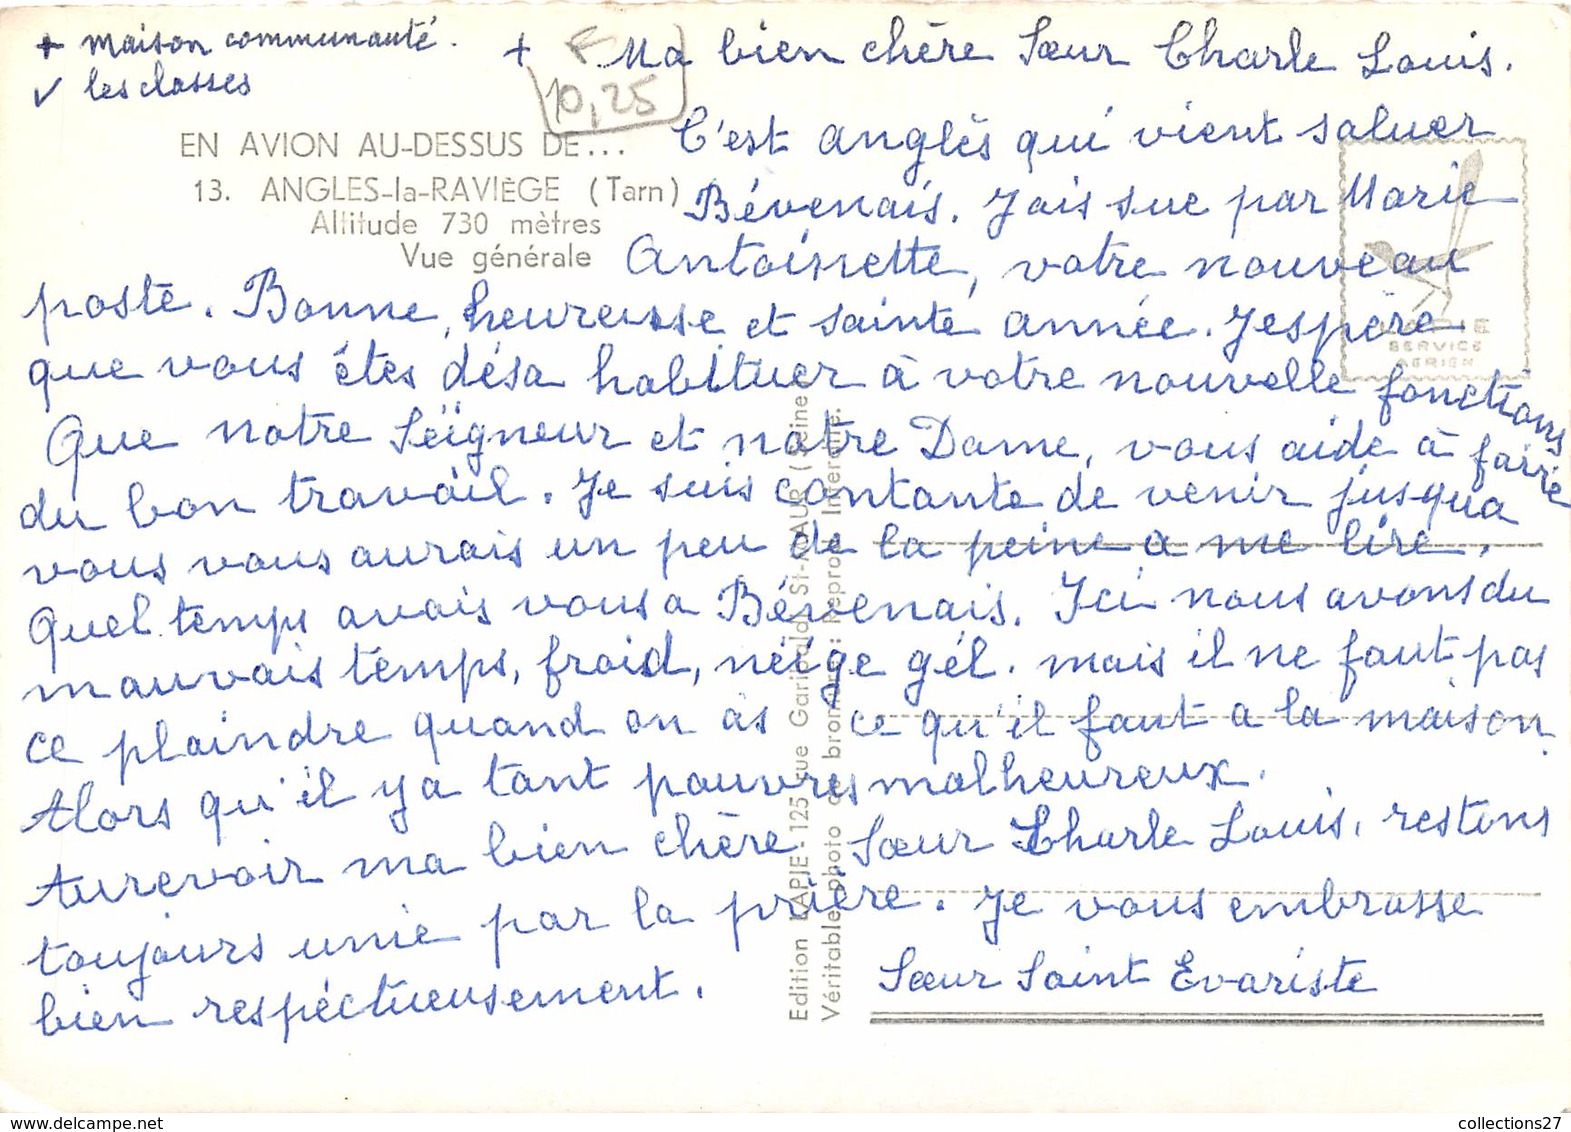 + maison communauté.
v les classes
+ Ma bien chère Sœur Charle Louis.
F
10,25
EN AVION AU-DESSUS DE...
13. ANGLES-la-RAVIÈGE (Tarn)
Altitude 730 mètres
Vue générale
C'est anglès qui vient saluer
Bévenais. Jais sue par Marie
Antoinette, votre nouveau
poste. Bonne, heureusse et sainte année. Jespère
que vous étes désa habituer à votre nouvelle fonctions
Que notre Seigneur et notre Dame, vous aide à faire
du bon travail. Je suis contante de venir jusqua
vous vous aurais un peu de la peine a me lire.
Quel temps avais vous a Bévenais. Ici nous avons du
mauvais temps, froid, neige gél. mais il ne faut pas
ce plaindre quand on as ce qu'il faut a la maison
Alors qu'il ya tant pauvres malheureux.
Aurevoir ma bien chère Sœur Charle Louis, restons
toujours unie par la prière. Je vous embrasse
bien respectueusement.
Sœur Saint Evariste
LAPIE
SERVICE
AERIEN
Edition LAPIE - 125, rue Garibaldi, St-MAUR (Seine)
Véritable photo au bromure : Reprod. Interdite.
collections27